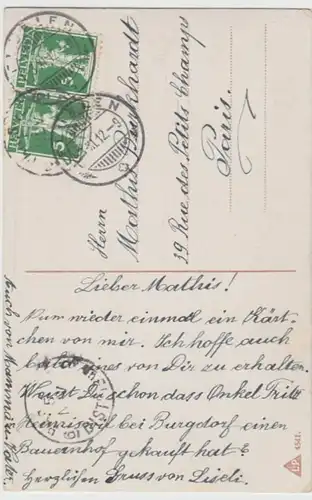 HELVETIA HELVETIA
5
Herrn
Mathis Burkhardt
39 Rue des Petits Champs
Paris.
Lieber Mathis!
Nun wieder einmal ein Kärt-
chen von mir. Ich hoffe auch
bald eines von Dir zu erhalten.
Weisst Du schon dass Onkel Fritz
Heiniswil bei Burgdorf einen
Bauernhof gekauft hat?
Herzlichen Gruss von Liseli.
Auch von Mamma &
4542.